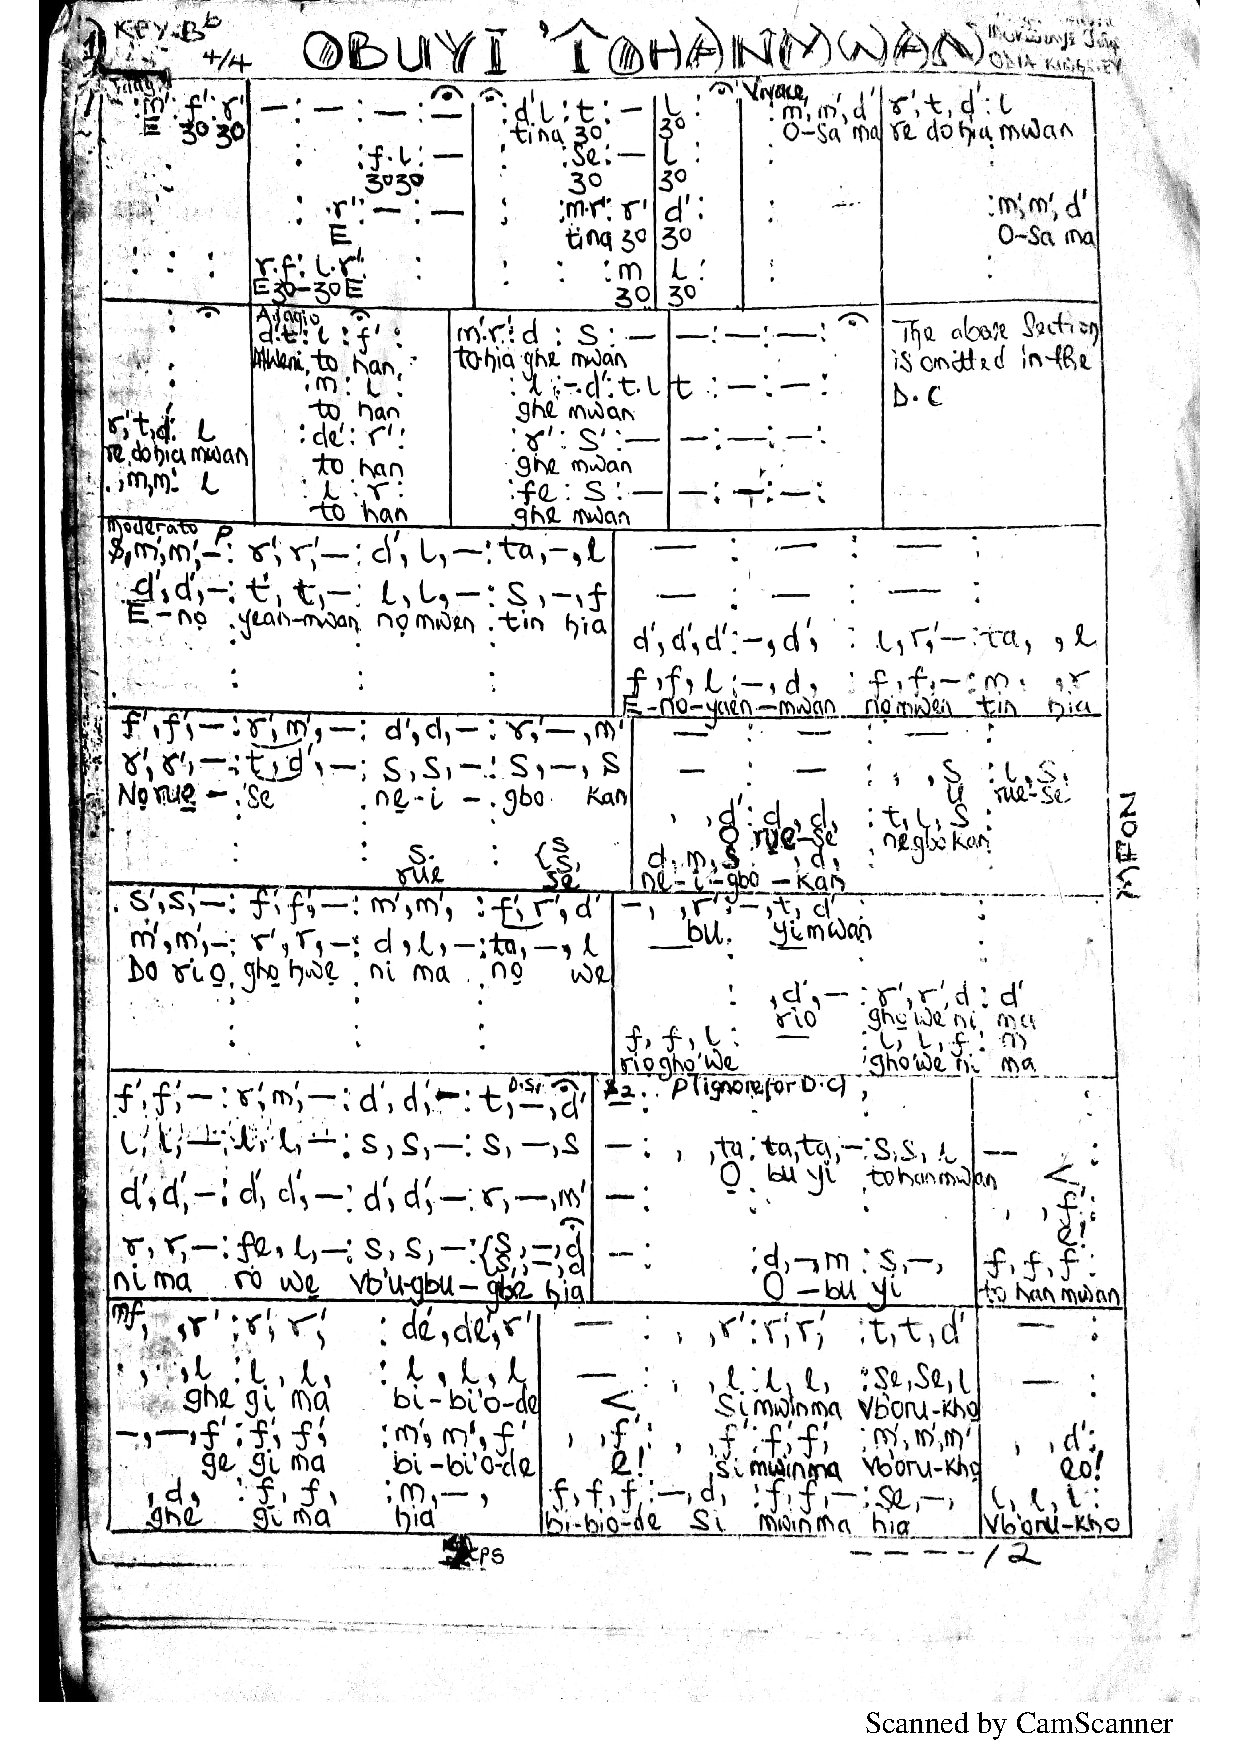 KEY Bb
4/4
OBUYI 'TOHANMWAN
:m': f': r' — : — : — : — : d'.l : t : — l : Vivace m', m', d' r', t, d' : l
E 30 30 tina 30 30 O-Sa ma re do hia mwan
: f.l : — : Se : — l :
30 30 30 30
: r' : — : — : m'.r' : r' d' : : m', m', d'
E tina 30 30 O-Sa ma
r.f : l.r' : : : m l :
E 30-30 E 30 30
Adagio
d'.t : l : f' : m'.r' : d : S : — — : — : — : The above Section
Mweni, to han, to-hia ghe mwan is omitted in the
: m : l : : l : -.d' : t.l t : — : — : D.C
to han ghe mwan
r', t, d' : l : de' : r' : : r' : S' : — — : — : — :
re do hia mwan to han ghe mwan
. , m, m : l : l : r : : fe : S : — — : — : — :
to han ghe mwan
Moderato P
S, m', m', – : r', r', – : d', l, – : ta, –, l — : — : — :
d', d', – : t, t, – : l, l, – : S, –, f — — —
E – nọ yean-mwan nọ mwen tin hia
d', d', d' : –, d', : l, r', – : ta, , l
f, f, l : –, d, : f, f, – : m, , r
E-no-yaen-mwan nomwen tin hia
f', f', – : r', m', – : d', d, – : r', –, m' — : — : — :
r', r', – : t, d', – : S, S, – : S, –, S — : — : , , S : l, S,
Nọ rue – Se nẹ-i – gbo kan u rue-se
, , d' : d, d, : t, l, S :
O rue-se negbo kan
S. : {S S, d, m, S : , d,
rue se ne-i-gbo-kan
MFON
. S', S', – : f', f', – : m', m', : f', r', d' –, , r' : –, t, d' :
bu. yi mwan
m', m', – : r', r, – : d, l, – : ta, –, l
Do rio ghọ hwẹ ni ma nọ we
: , d', – : r', r', d : d'
rio ghọ we ni ma
f, f, l : : l, l, f : m
rio gho'we gho'we ni ma
D.S.
f', f', – : r', m', – : d', d', – : t, –, d' S2. P (ignore for D.C)
l, l, – : l, l, – : S, S, – : S, –, S — : , , ta : ta, ta, – : S, S, l — :
O bu yi tohanmwan <
d', d', – : d', d', – : d', d', – : r, –, m' — : , , f' :
e!
r, r, – : fe, l, – : S, S, – : {S, –, d S, –, d — : : d, –, m : S, –, f, f, f :
ni ma ro we vb'u-gbu – gbe hia O – bu yi to han mwan
mf
, , r' : r', r', : de', de', r' — : , , r' : r', r', : t, t, d' — :
: , , l : l, l, : l, l, l — : , l : l, l, : Se, Se, l — :
ghe gi ma bi-bi'o-de < Si mwin ma Vb'oru-kho
–, –, f' : f', f', : m', m', f' , , f' : , , f' : f', f', : m', m', m' , , d' :
ge gi ma bi-bi'o-de e! Si mwin ma vb'oru-kho eo!
, d, : f, f, : m, –, f, f, f : –, d, : f, f, – : Se, –, l, l, l :
ghe gi ma hia bi-bio-de Si mwin ma hia Vb'oru-kho
– – – –/2
Scanned by CamScanner